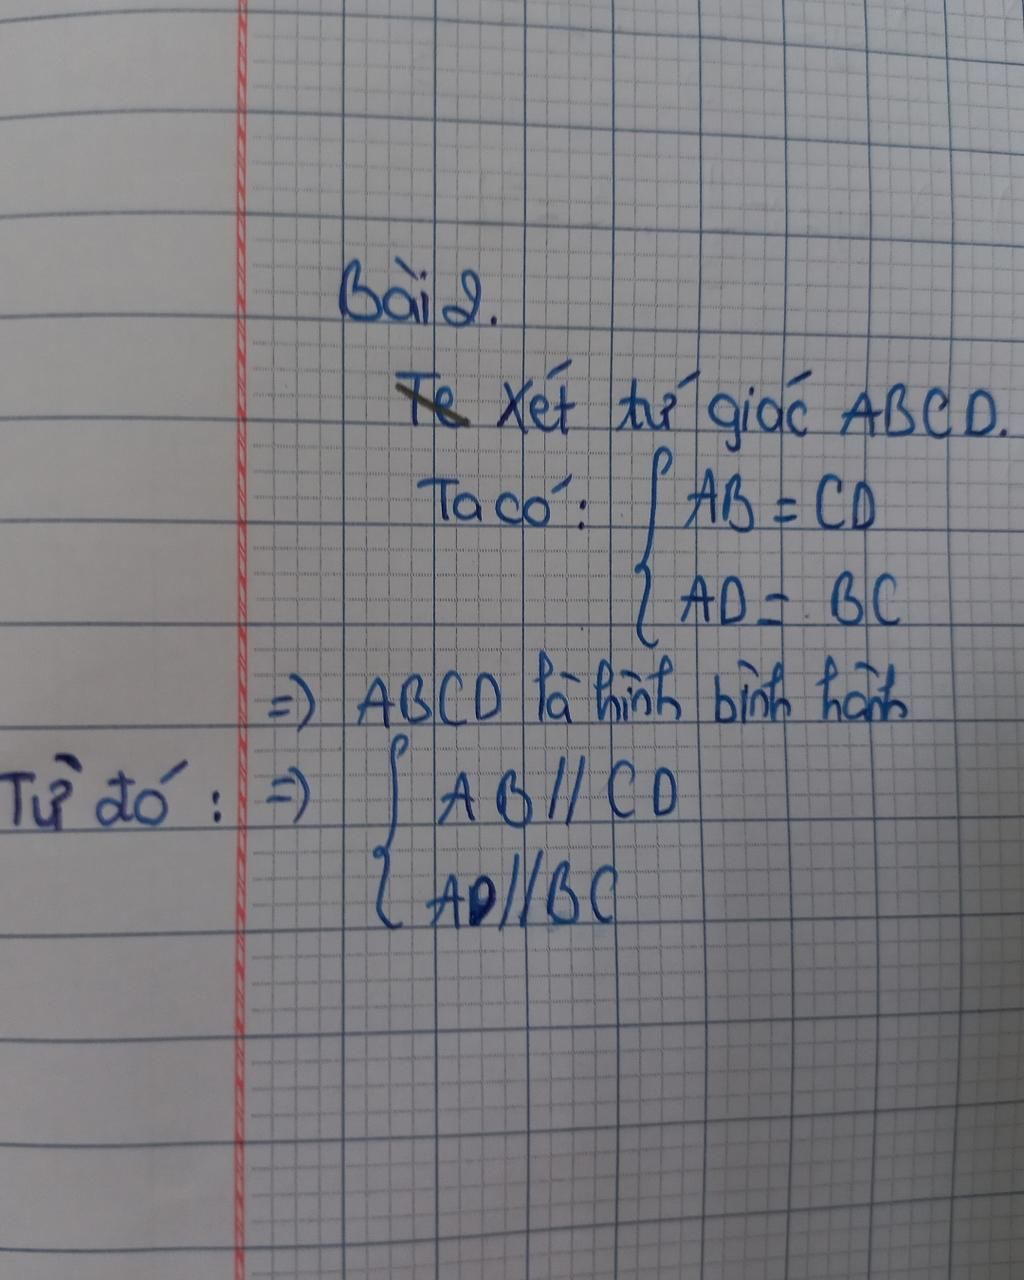 Bài 2.
Te Xét tứ giác ABCD.
Ta có: { AB = CD
AD = BC
=> ABCD là hình bình hành
Từ đó: => { AB // CD
AD // BC